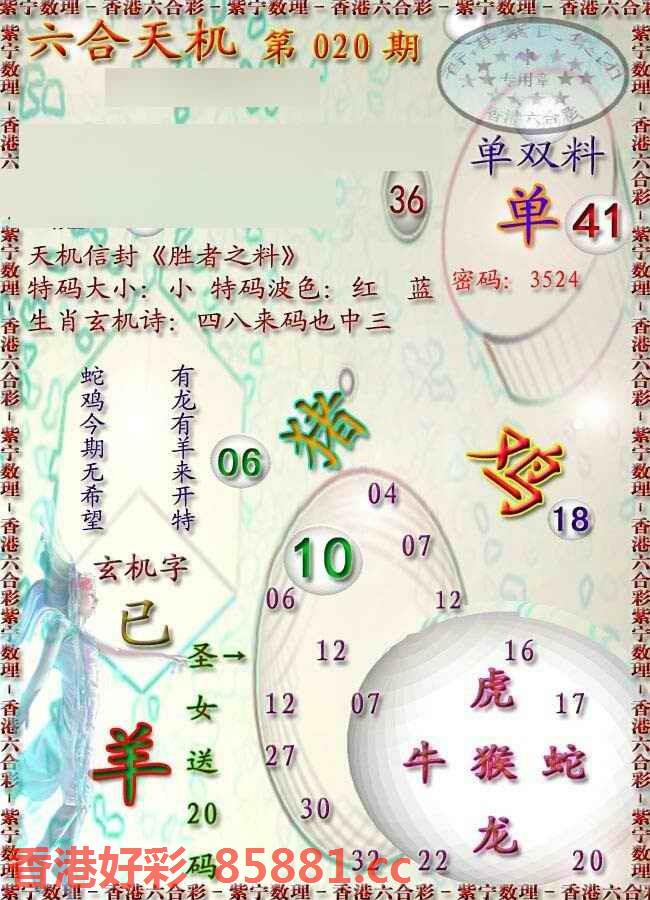 紫宁数理－香港六合彩－紫宁数理－香港六合彩－紫宁数理－香港六合彩－紫宁
六合天机 第 020 期
专用章
香港六合彩
单双料
单 41
36
天机信封《胜者之料》
特码大小：小 特码波色：红 蓝
密码：3524
生肖玄机诗：四八来码也中三
有龙有羊来开特
蛇鸡今期无希望
猪
06
鸡
18
04
10
07
玄机字
06
12
已
圣→
12
16
女
12
07
虎
17
羊
送
27
牛 猴 蛇
20
30
龙
码
32
22
20
香港好彩 85881.cc
紫宁数理－香港六合彩－紫宁数理－香港六合彩－紫宁数理－香港六合彩